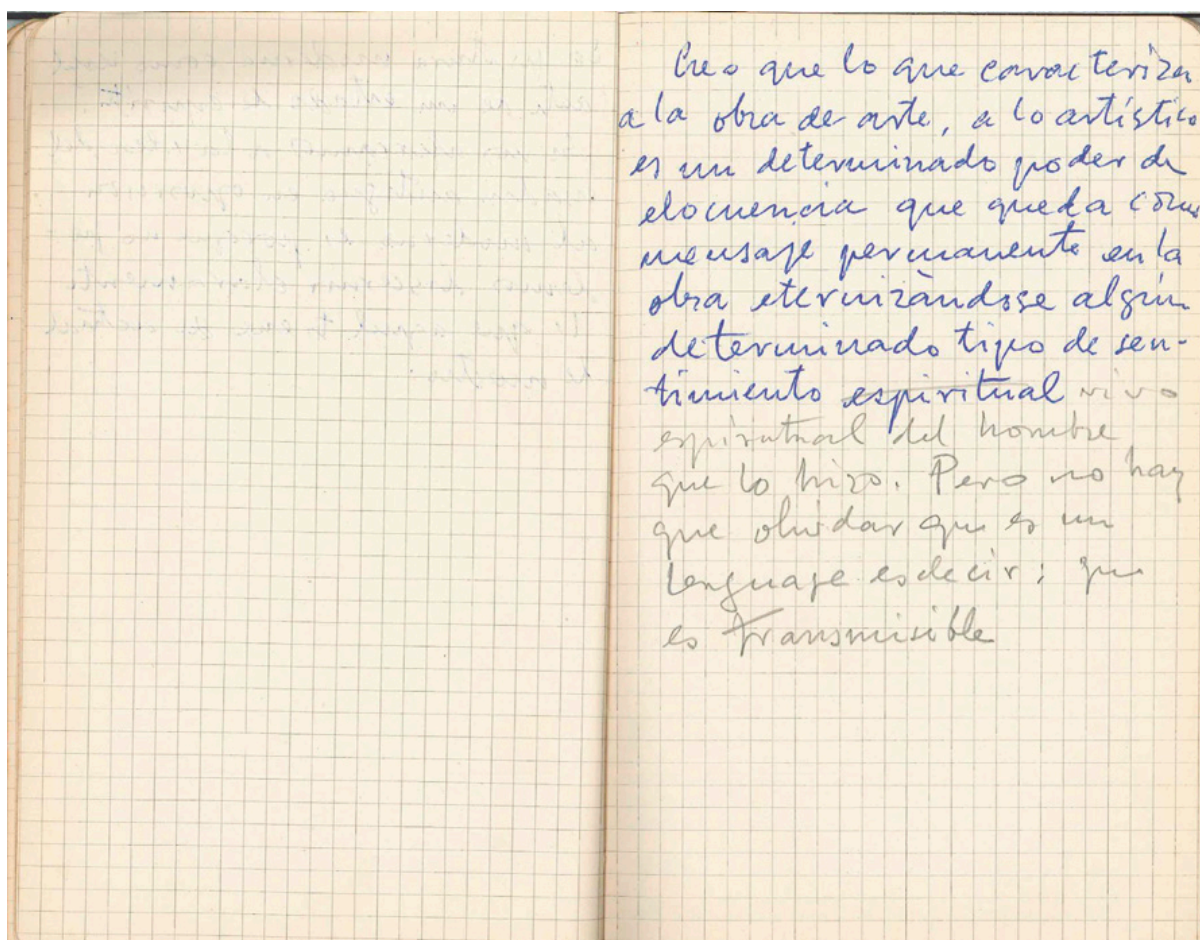 Creo que lo que caracteriza
a la obra de arte, a lo artístico
es un determinado poder de
elocuencia que queda como
mensaje permanente en la
obra eternizàndose algún
determinado tipo de sen-
timiento espiritual vivo
espiritual del hombre
que lo hizo. Pero no hay
que olvidar que es un
Lenguaje es decir: que
es transmisible